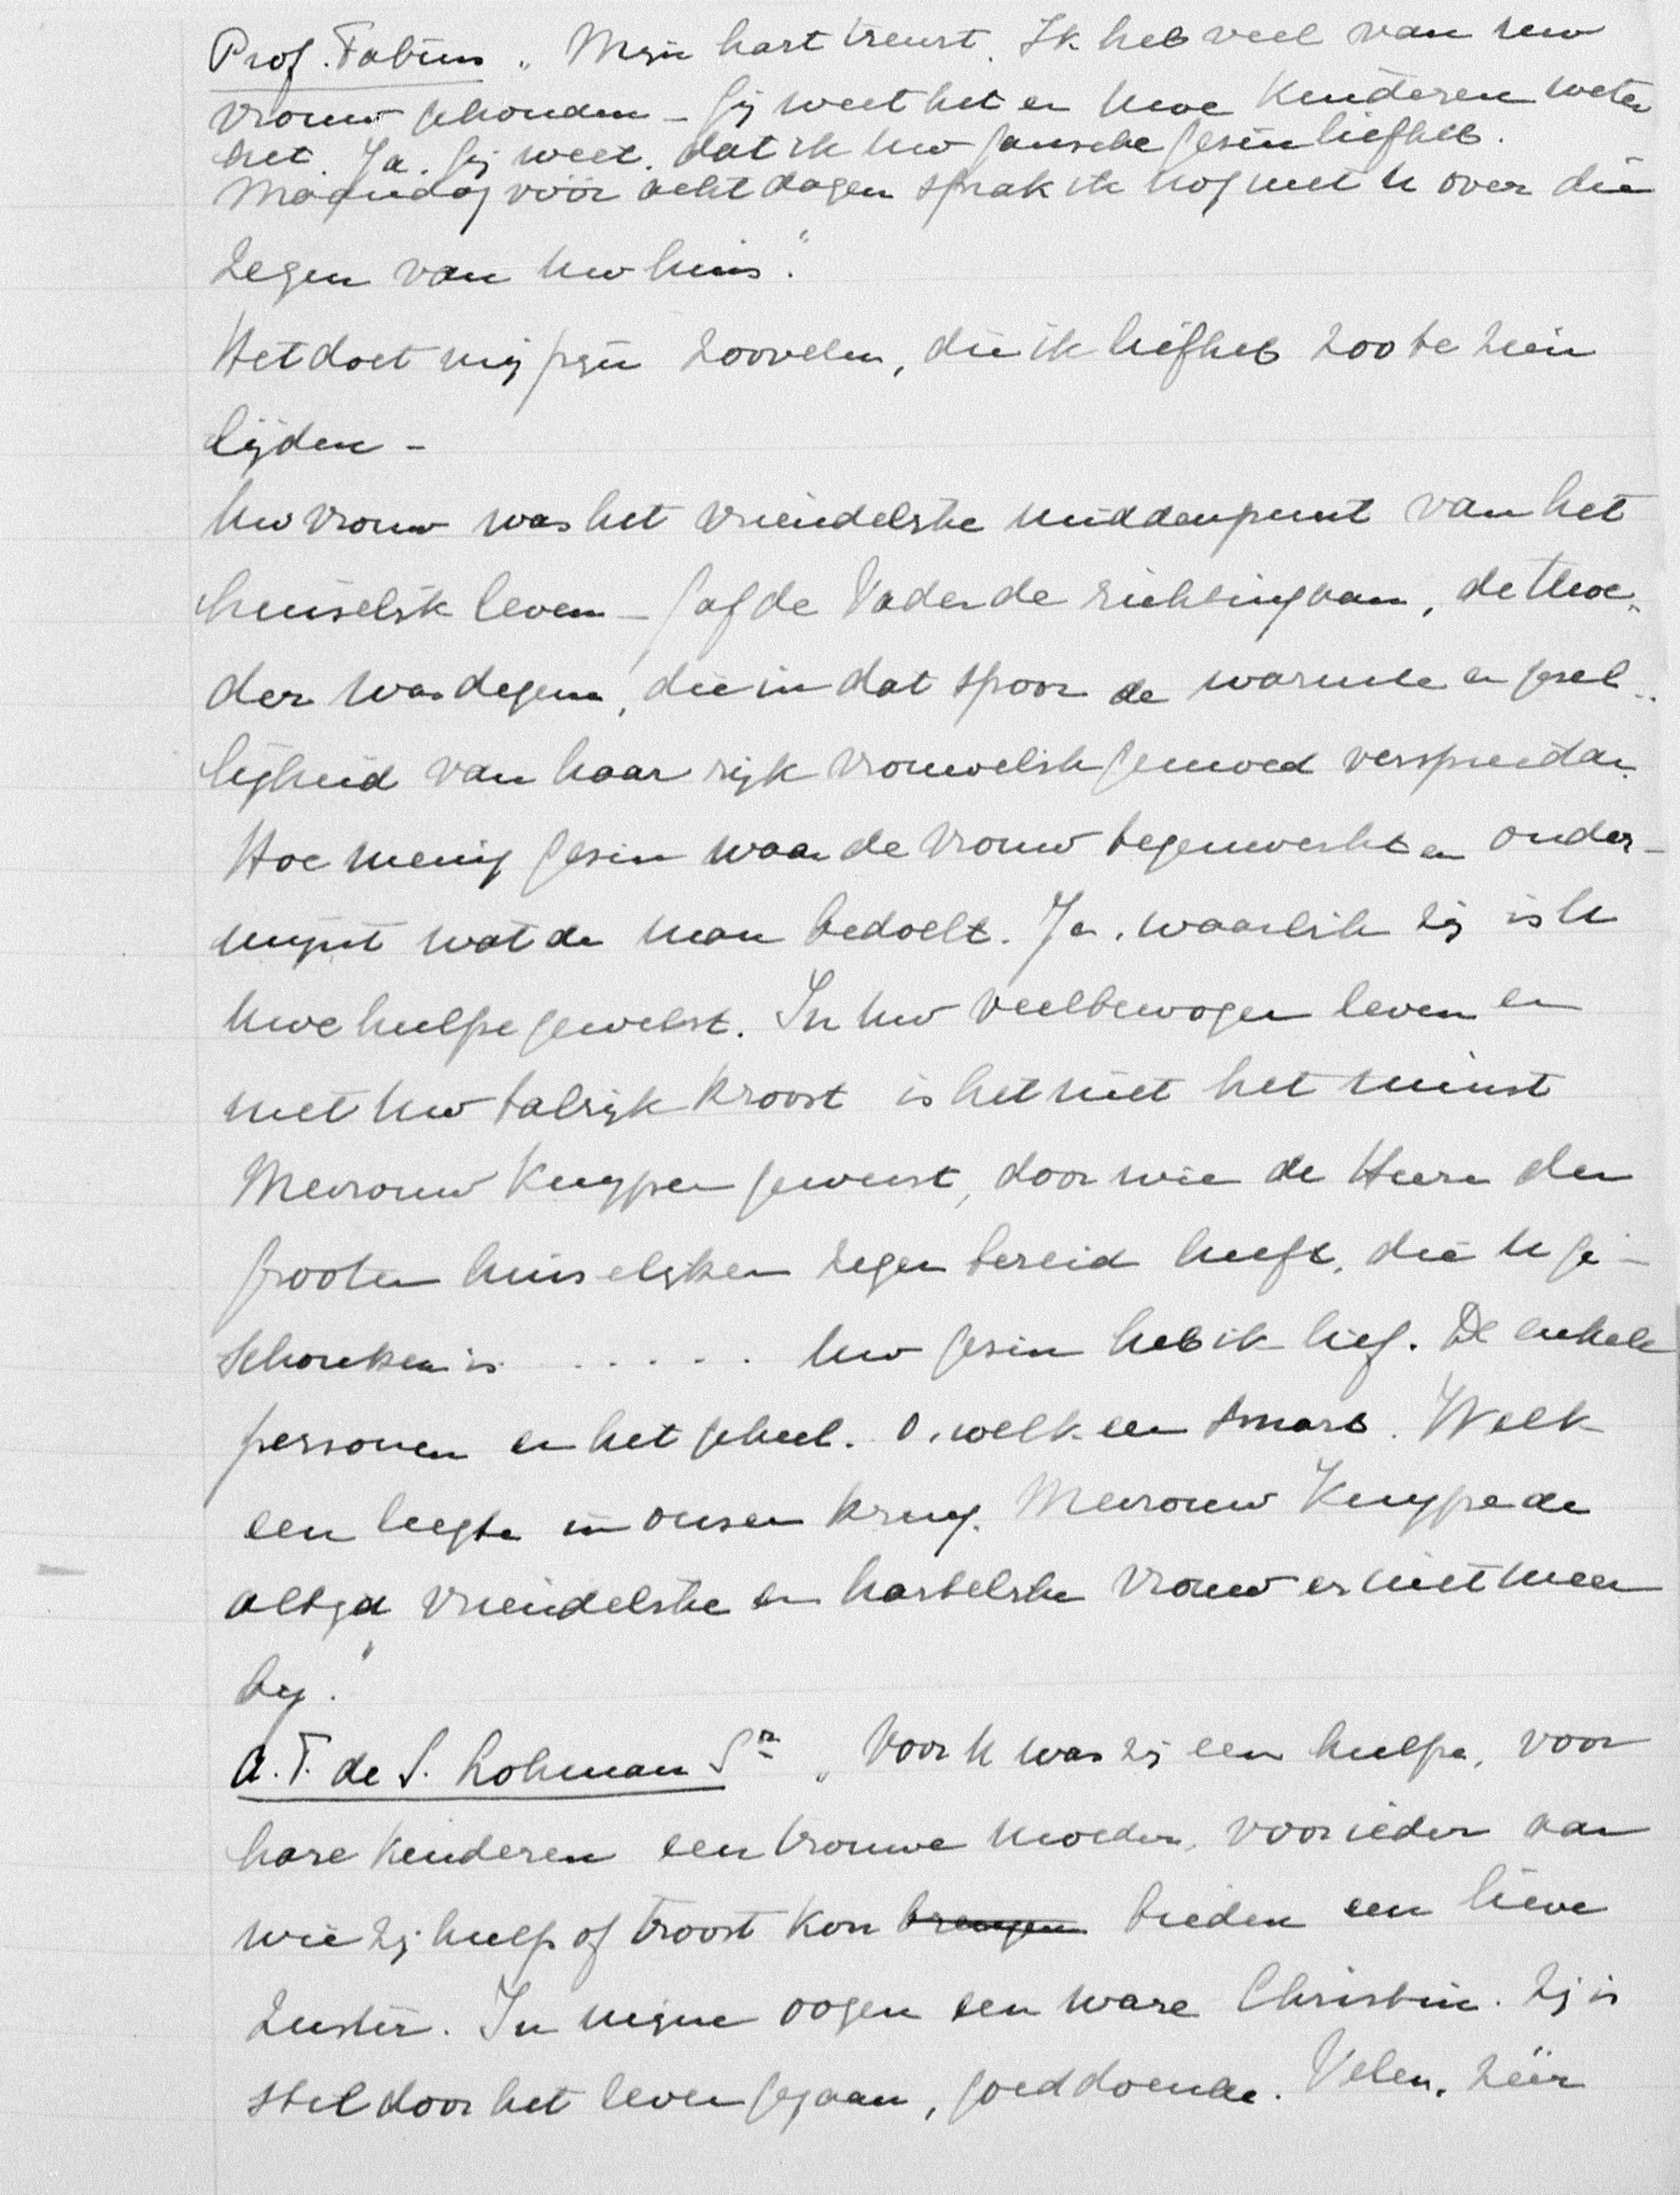 Prof. Fabius „Mijn hart treurt. Ik heb veel van uw
vrouw gehouden – gij weet het en uwe kinderen weten
het. Ja. gij weet, dat ik uw gansche gesin liefheb.
Maandag vóór acht dagen sprak ik nog met u over die
zegen van uw huis."
Het doet mij pijn zoovelen, die ik liefheb zoo te zien
lijden –
Uw vrouw was het vriendelijke middenpunt van het
huiselijk leven – gaf de Vader de richting aan, de Moe-
der was degene, die in dat spoor de warmte en gesel-
ligheid van haar rijk vrouwelijk gemoed verspreidde.
Hoe menig gesin waar de vrouw tegenwerkt en onder-
mijnt wat de man bedoelt. Ja, waarlijk zij is U
uwe hulpe geweest. In uw veelbewogen leven en
met uw talrijk kroost is het niet het minst
Mevrouw Kuyper geweest, door wie de Heere den
grooten huiselijken zegen bereid heeft, die U ge-
schonken is. . . . . . Uw gesin heb ik lief. De enkele
personen en het geheel. O, welk een smart. Welk
een leegte in onsen kring. Mevrouw Kuyper de
altijd vriendelijke en hartelijke vrouw er niet meer
bij."
A. F. de S. Lohman Sr „Voor U was zij een hulpe, voor
hare kinderen een trouwe moeder, voor ieder aan
wie zij hulp of troost kon brengen bieden een lieve
zuster. In mijne oogen een ware Christin. Zij is
stil door het leven gegaan, goeddoende. Velen, zéér